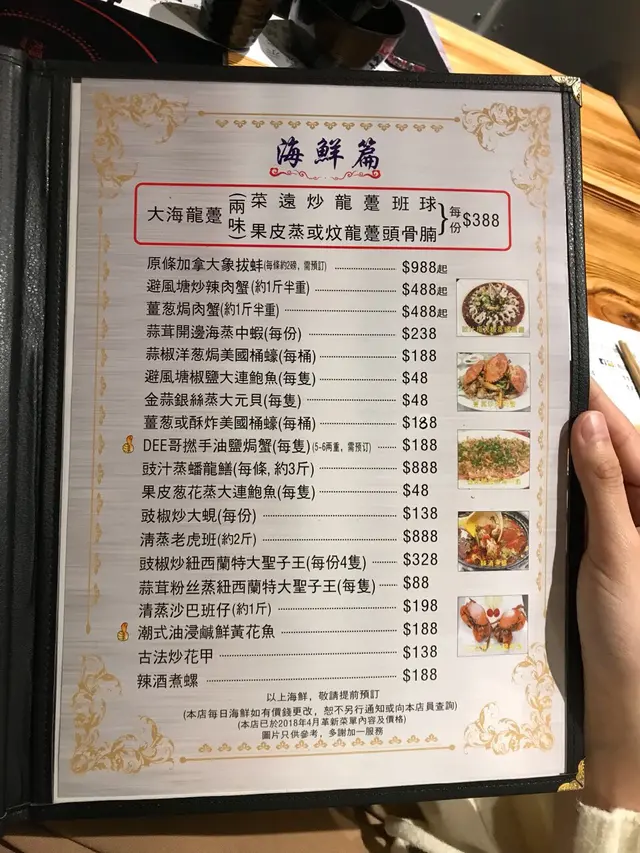 海鮮篇
大海龍躉(兩味)
菜遠炒龍躉班球
果皮蒸或炆龍躉頭骨腩
每份$388
原條加拿大象拔蚌(每條約2磅, 需預訂) $988起
避風塘炒辣肉蟹(約1斤半重) $488起
薑葱焗肉蟹(約1斤半重) $488起
蒜茸開邊海蒸中蝦(每份) $238
蒜椒洋葱焗美國桶蠔(每桶) $188
避風塘椒鹽大連鮑魚(每隻) $48
金蒜銀絲蒸大元貝(每隻) $48
薑葱或酥炸美國桶蠔(每桶) $188
DEE哥撚手油鹽焗蟹(每隻)(5-6両重, 需預訂) $188
豉汁蒸蟠龍鱔(每條, 約3斤) $888
果皮葱花蒸大連鮑魚(每隻) $48
豉椒炒大蜆(每份) $138
清蒸老虎班(約2斤) $888
豉椒炒紐西蘭特大聖子王(每份4隻) $328
蒜茸粉丝蒸紐西蘭特大聖子王(每隻) $88
清蒸沙巴班仔(約1斤) $198
潮式油浸鹹鮮黃花魚 $188
古法炒花甲 $138
辣酒煮螺 $188
以上海鮮，敬請提前預訂
(本店每日海鮮如有價錢更改，恕不另行通知或向本店員查詢)
(本店已於2018年4月革新菜單內容及價格)
圖片只供參考，多謝加一服務